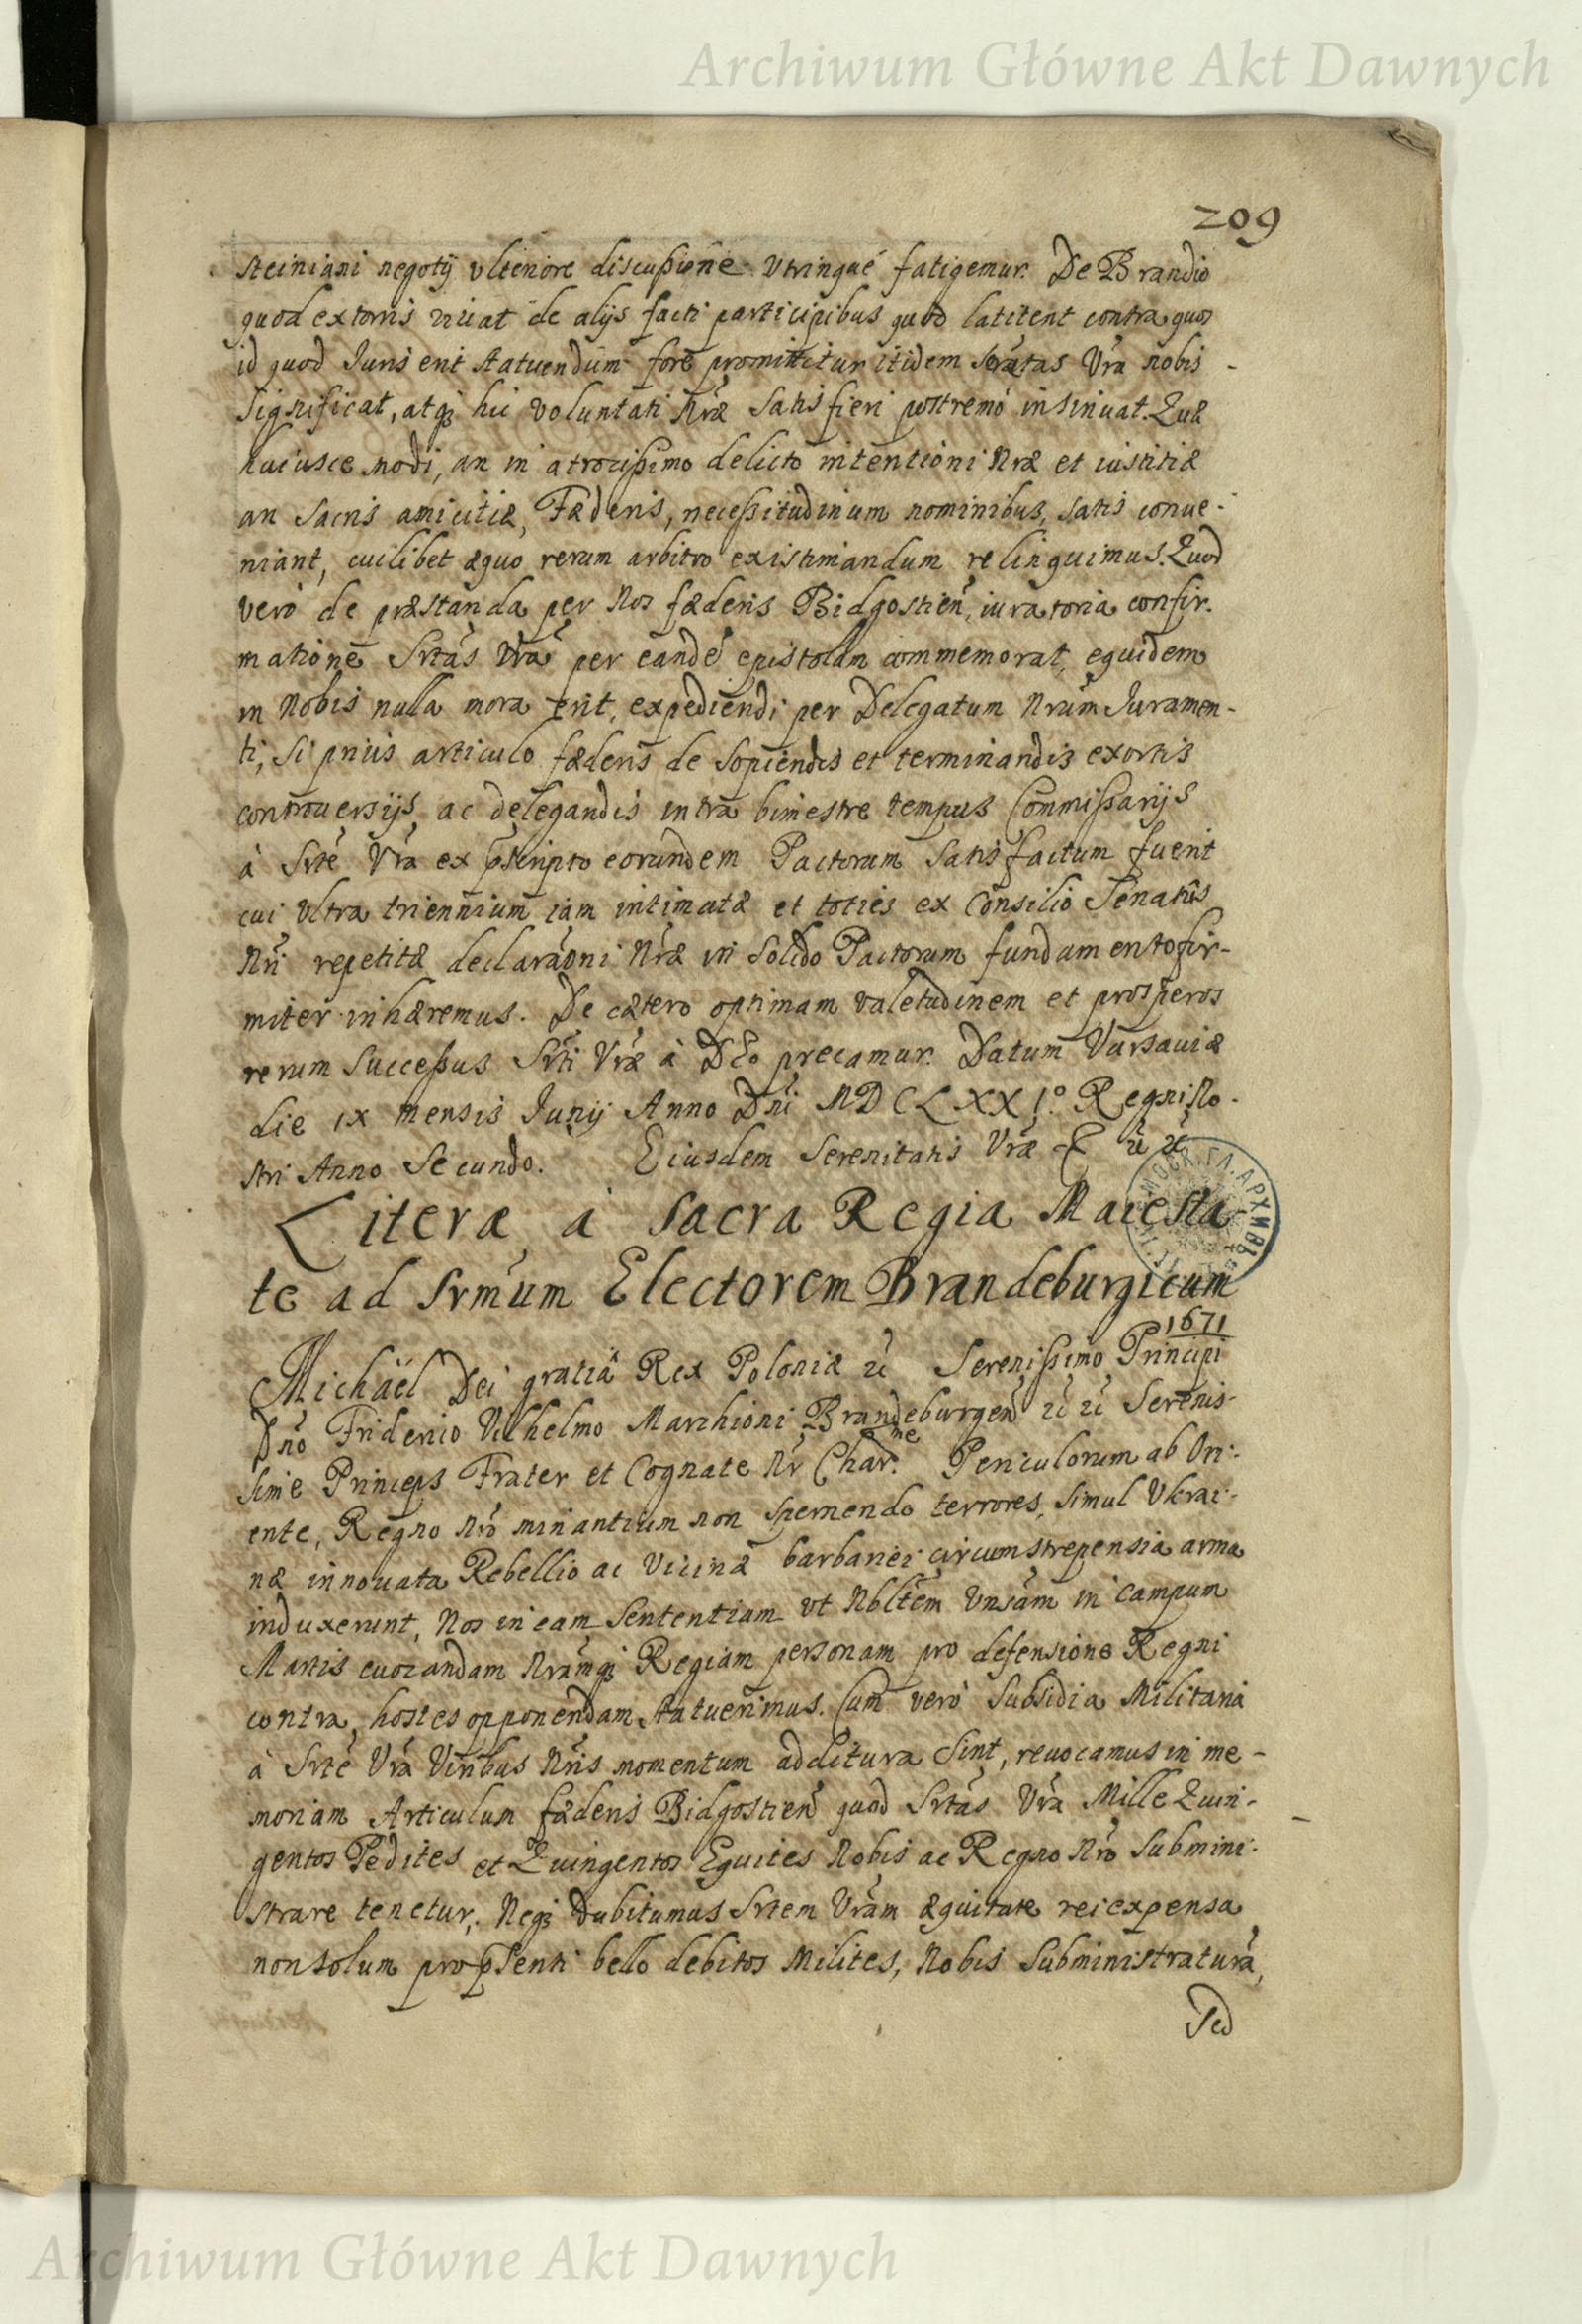 Archiwum Główne Akt Dawnych
209
steiniani negotij vlteriore discußione vtrinque fatigemur. De Brandio
quod extorris viuat de alijs facti participibus quod latitent contra quos
id quod Juris erit statuendum fore promittitur itidem Sertas Vra nobis
significat, atq3 hic voluntati Nræ satisfieri postremò insinuat. Quæ
huiusce modi, an in atrocißimo delicto intentioni Nræ et iustitiæ
an sacris amicitiæ, Fæderis, neceßitudinum nominibus, satis conue-
niant, cuilibet æquo rerum arbitro existimandum relinquimus. Quod
verò de præstanda per Nos fæderis Bidgostien, iuratoria confir-
matione Srtas Vra per eande epistolam commemorat, equidem
in Nobis nulla mora erit, expediendi per Delegatum Nrum Juramen-
ti, si prius articulo fæderis de sopiendis et terminandis exortis
controuersijs, ac delegandis intra bimestre tempus Commißarijs
à Srte Vra ex pscripto eorundem Pactorum satisfactum fuerit
cui vltra triennium iam intimatæ et toties ex Consilio Senatûs
Nri repetitæ declaraoni Nræ in solido Pactorum fundamento fir-
miter inhæremus. De cætero optimam valetudinem et prosperos
rerum succeßus Srti Vræ à DEo precamur. Datum Varsauiæ
die IX mensis Junij Anno Dni MDCLXXI.º Regni No-
stri Anno Secundo. Eiusdem Serenitatis Vræ
Literæ à Sacra Regia Maiesta-
te ad Srmum Electorem Brandeburgicum
1671
Michäel Dei gratiâ Rex Poloniæ &c Serenißimo Principi
Dno Friderico Vilhelmo Marchioni Brandeburgen &c &c Serenis-
sime Princeps Frater et Cognate Nr Char.me Periculorum ab Ori-
ente, Regno Nro minantium non spernendo terrores, simul Vkrai-
næ innouata Rebellio ac Vicinæ barbariei circumstrepensia arma
induxerunt, Nos in eam sententiam vt Nbltem Vnsam in campum
Martis euocandam Nramq3 Regiam personam pro defensione Regni
contra hostes opponendam statuerimus. Cum verò subsidia Militaria
à Srte Vra Viribus Nris momentum additura sint, reuocamus in me-
moriam Articulum fæderis Bidgostien quod Srtas Vra Mille Quin-
gentos Pedites et Quingentos Equites Nobis ac Regno Nro submini-
strare tenetur. Neq3 dubitamus Srtem Vram æquitate rei expensa
non solum pro psenti bello debitos Milites, Nobis subministratura,
Sed
Archiwum Główne Akt Dawnych